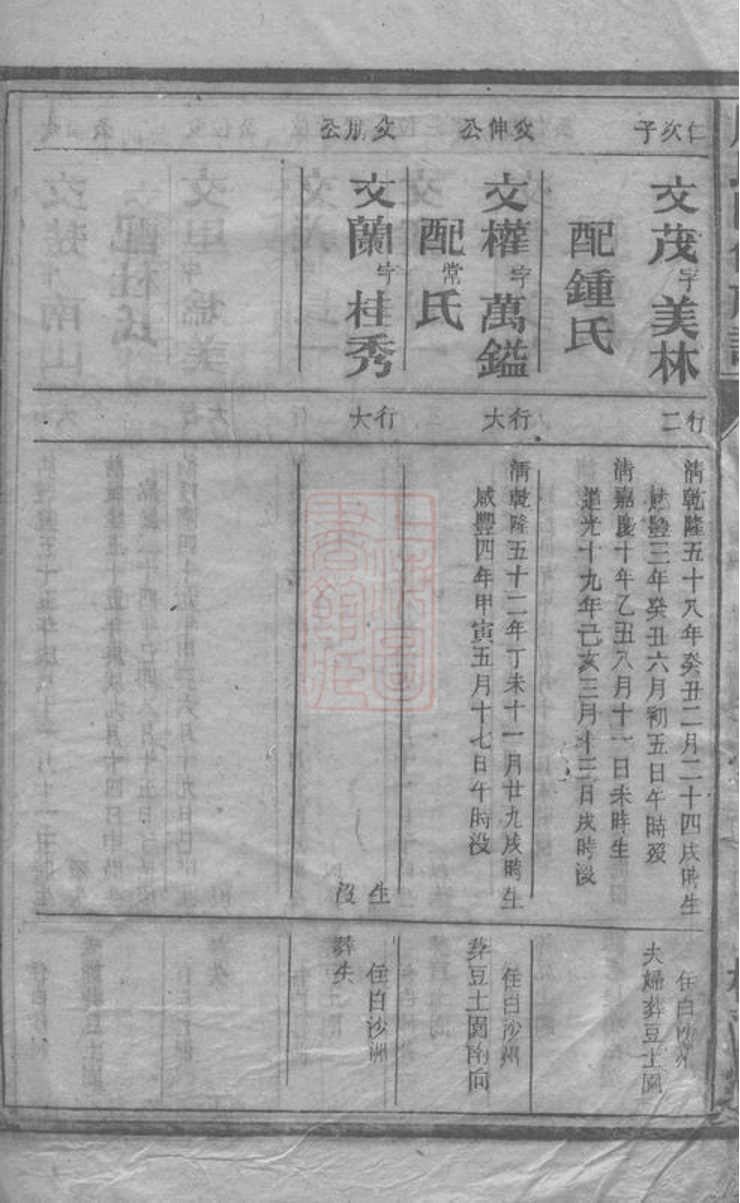 仁次子
文茂字美林
配鍾氏
行二
清乾隆五十八年癸丑二月二十四戌時生
咸豐三年癸丑六月初五日午時歿
清嘉慶十年乙丑八月十一日未時生
道光十九年己亥三月十三日戌時没
住白沙州
夫婦葬豆土園
文伸公
文權字萬鎰
配常氏
行大
清乾隆五十二年丁未十一月廿九戌時生
咸豐四年甲寅五月十七日午時没
住白沙州
葬豆土園南向
文朋公
文蘭字桂秀
行大
生
没
住白沙洲
葬失